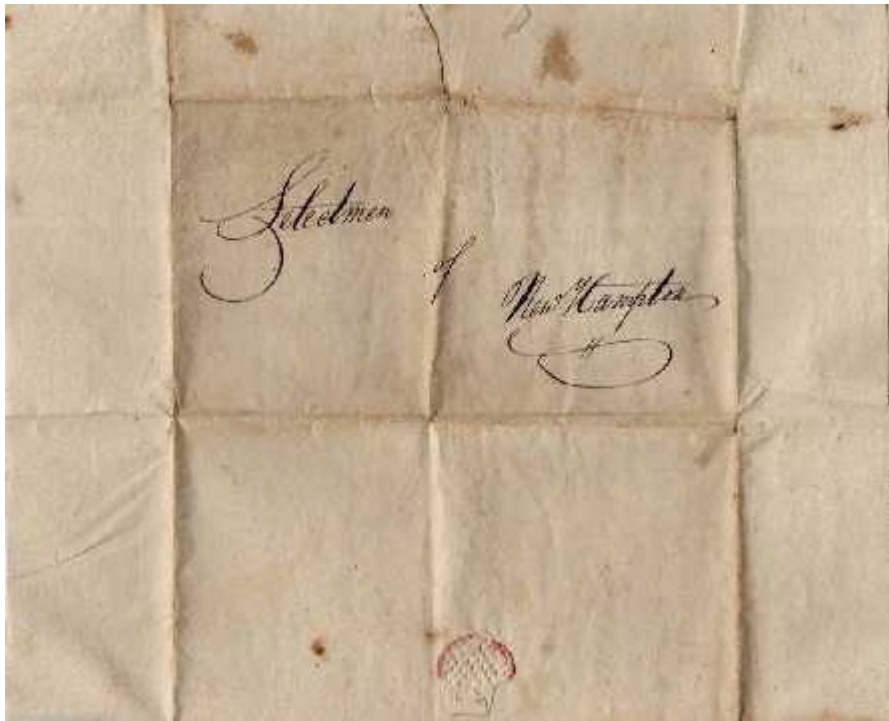 Selectmen
of
New Hampton